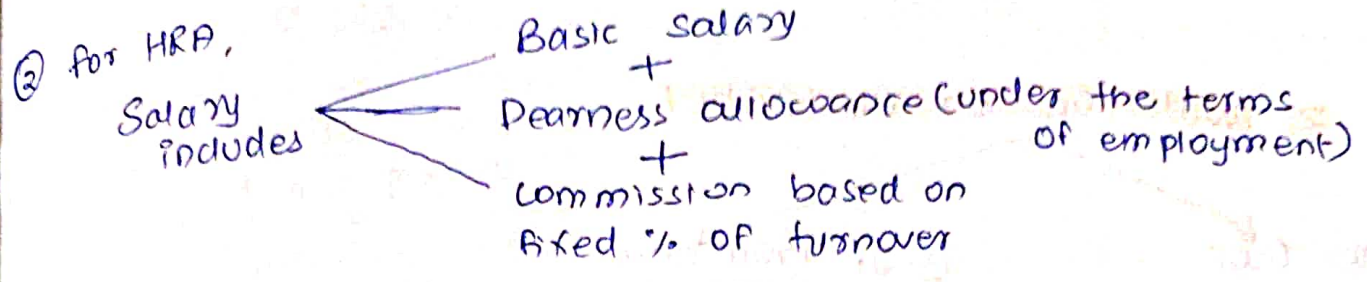 ② for HRA,
Salary includes
Basic salary
+
Dearness allowance (under the terms of employment)
+
commission based on
fixed % of turnover